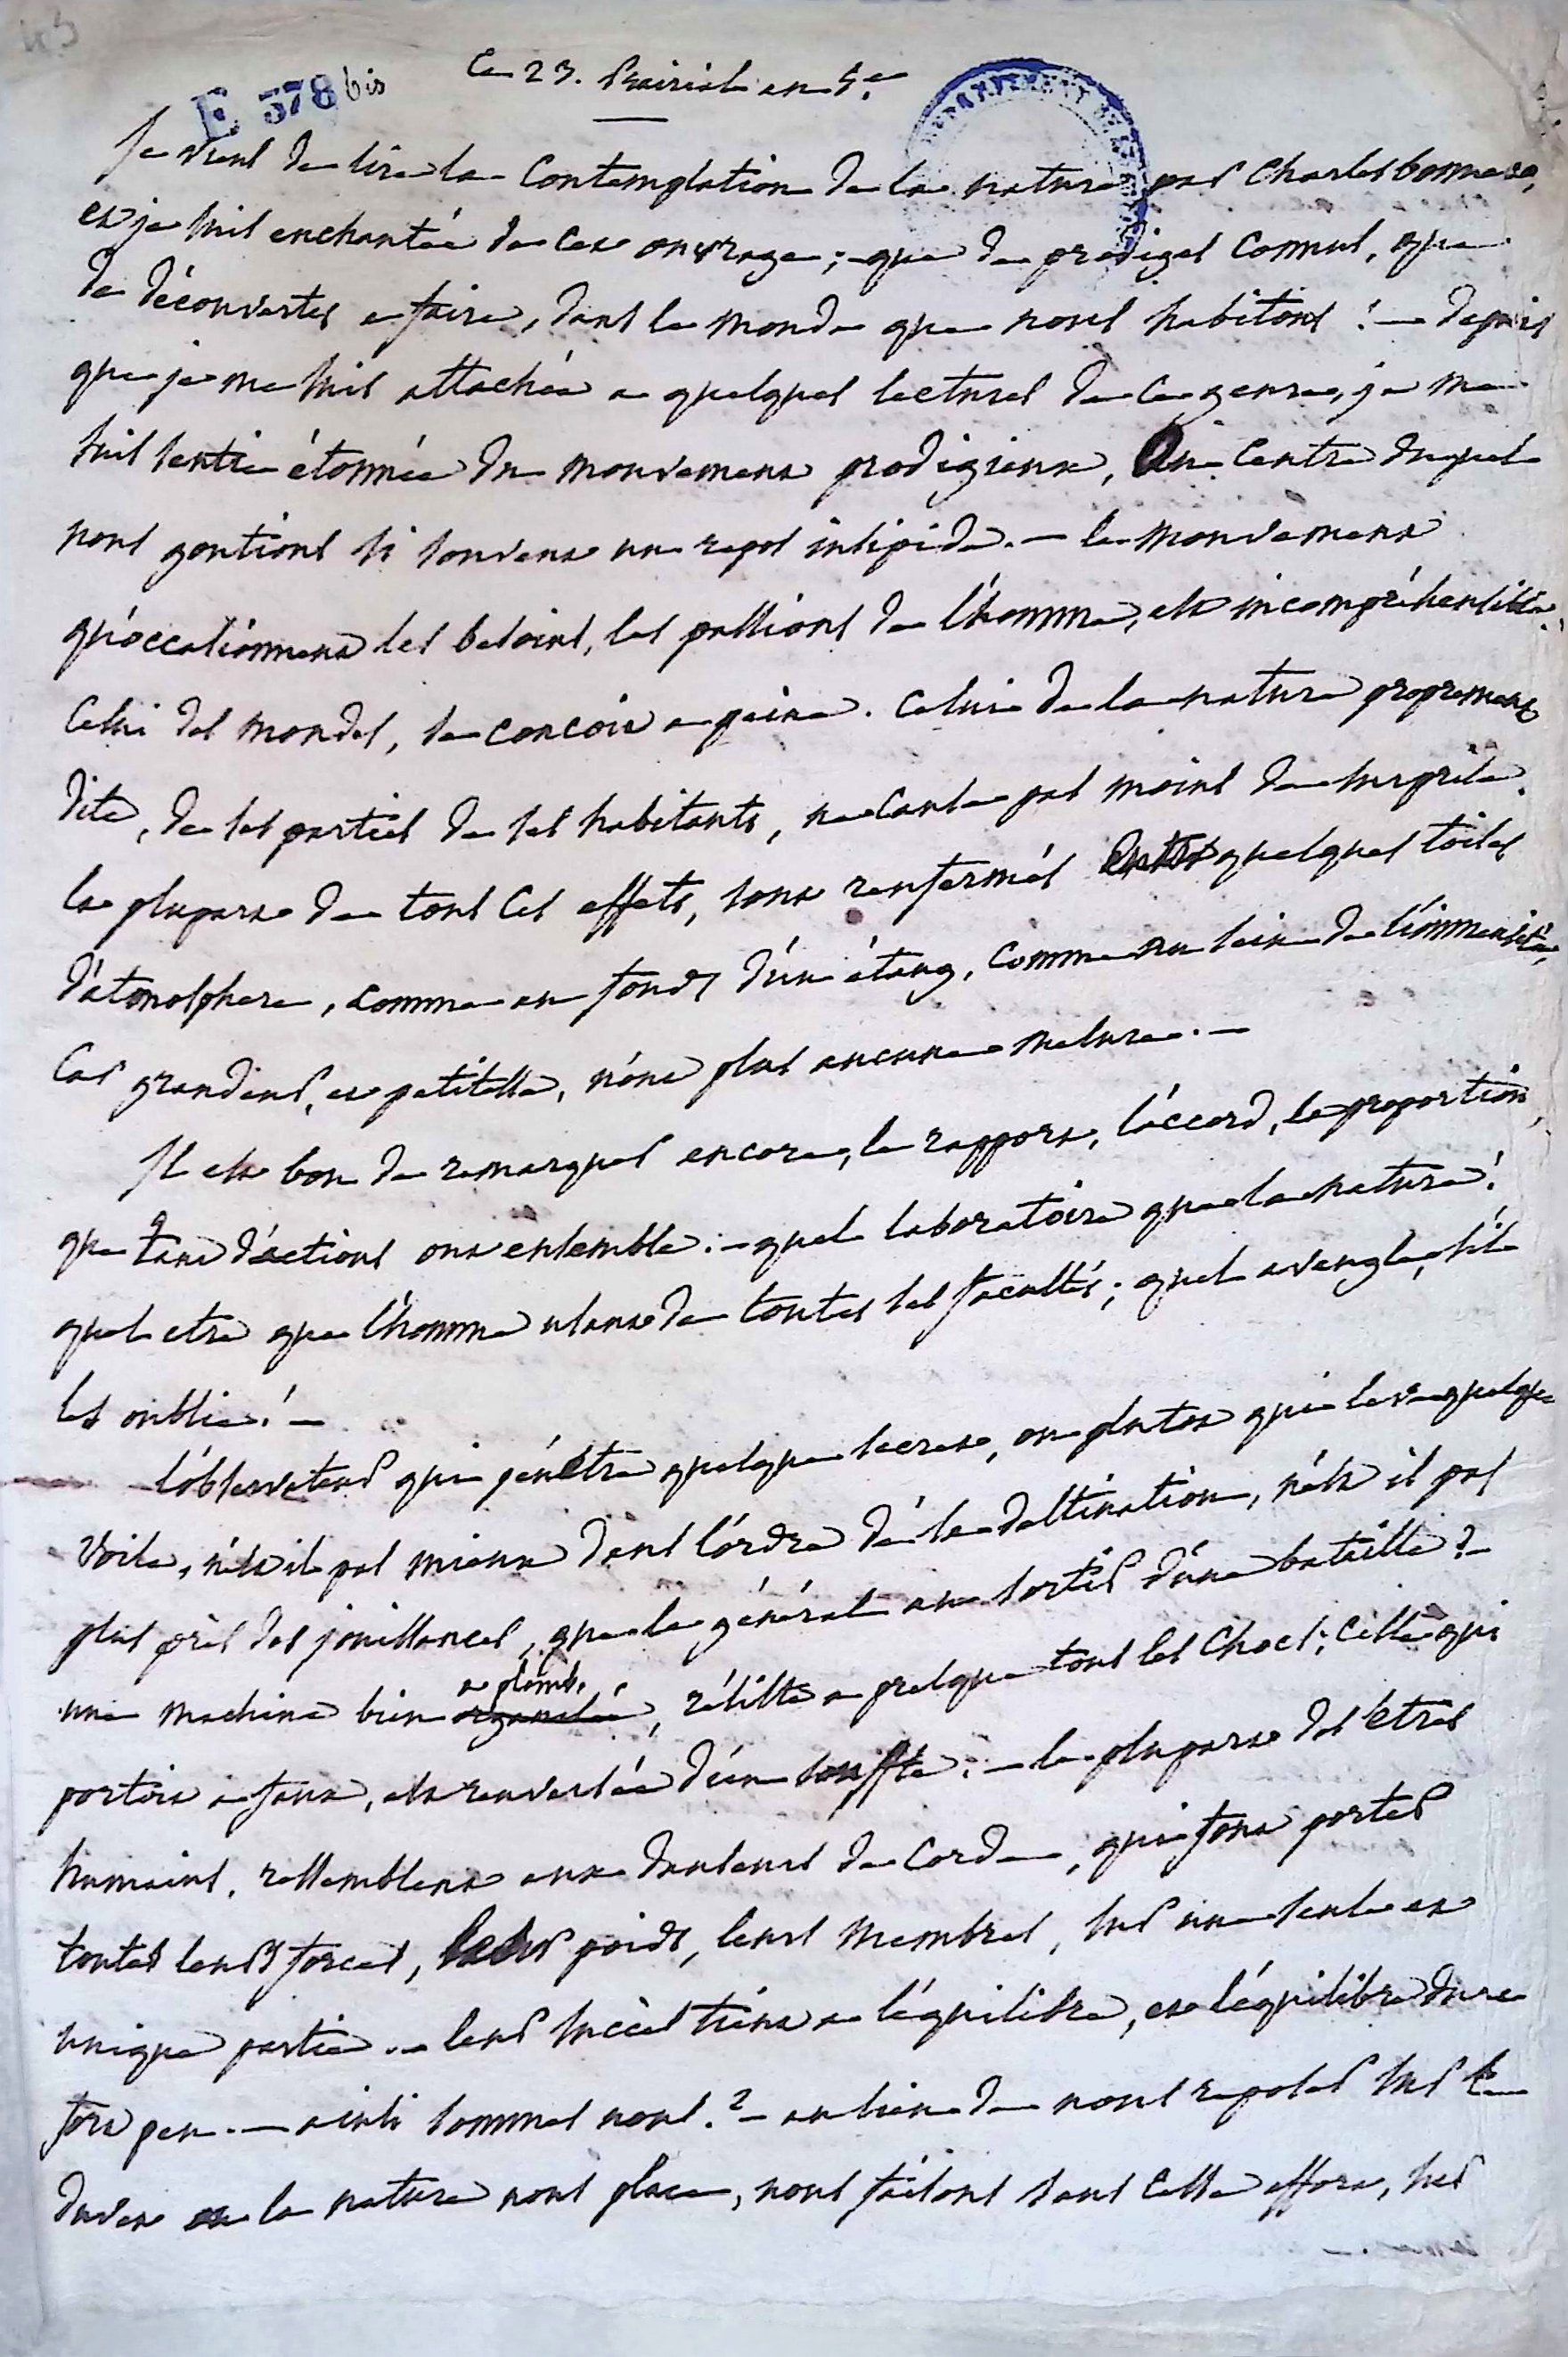 E 378 bis
Ce 23. Prairial an 5.e
Je viens de lire la Contemplation de la nature par Charles bonnet,
et je suis enchantée de cet ouvrage; que de prodiges connus, que
de découvertes a faire, dans le monde que nous habitons! — depuis
que je me suis attachée a quelques lectures de ce genre, je me
suis sentie étonnée du mouvement prodigieux, au centre duquel
nous goutions si souvent un repos insipide. — le mouvement
qu'occasionnent les besoins, les passions de l'homme, est incompréhensible.
Celui des mondes, se concoit a peine. Celui de la nature proprement
dite, de ses parties de ses habitants, ne cause pas moins de surprise.
la plupart de tous ces effets, sont renfermés entre quelques toises
d'atmosphere, comme au fonds d'un étang, comme au sein de l'immensité,
Car grandeur, et petitesse, n'ont plus aucune mesure. —
Il est bon de remarquer encore, le rapport, l'accord, la proportion,
que tant d'actions ont ensemble. — quel laboratoire que la nature!
quel etre que l'homme usant de toutes ses facultés; quel aveugle, s'il
les oublie! —
L'observateur qui pénétre quelque secret, ou plutot qui leve quelque
voile, n'est il pas mieux dans l'ordre de sa destination, n'est il pas
plus près des jouissances, que le général au sortir d'une bataille? —
une machine bien organisée a plomb, résiste a presque tous les chocs; celle qui
portoit a faux, est renversée d'un souffle. — la plupart des etres
humains, ressemblent aux danseurs de corde, qui font porter
toutes leurs forces, leurs poids, leurs membres, sur une seule et
unique partie. — leur succès tient a l'équilibre, et l'équilibre dure
fort peu. — ainsi sommes nous. ? — au lieu de nous reposer sur le
duvet ou la nature nous place, nous faisons sans cesse effort, sur